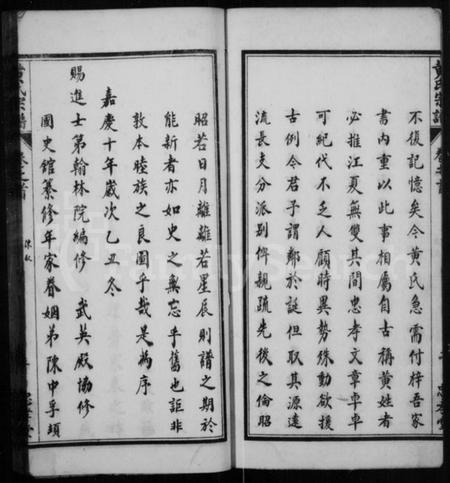 黄氏宗譜
卷之首
不復記憶矣今黄氏急需付梓吾家
書内重以此事相屬自古稱黄姓者
必推江夏無雙其間忠孝文章卓卓
可紀代不乏人顧時異勢殊動欲援
古例今君子謂鄰於誕但取其源遠
流長支分派别俾親疏先後之倫昭
昭若日月離離若星辰則譜之期於
能新者亦如史之無忘乎舊也詎非
敦本睦族之良圖乎哉是為序
嘉慶十年歲次乙丑冬
賜進士第翰林院編修　武英殿協修
國史館纂修年家眷姻弟陳申孚頓
黄氏宗譜
卷之首
陳敘
FamilySearch